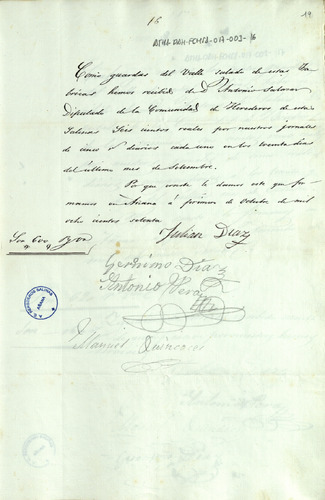 16
19
ATHA-DAH-FCMSA-017-003-16
Como guardas del Valle salado de estas fa-
bricas hemos recibido de Dn Antonio Salazar
Diputado de la Comunidad de Herederos de esta
Salinas Seis cientos reales por nuestros jornales
de cinco rs diarios cada uno en los treinta dias
del último mes de Setiembre.
Por que conste le damos este que fir-
mamos en Anana á primero de Octubre de mil
ocho cientos setenta
Julian Diaz
Son 600 rs von
Gerónimo Diaz
Antonio
Manuel